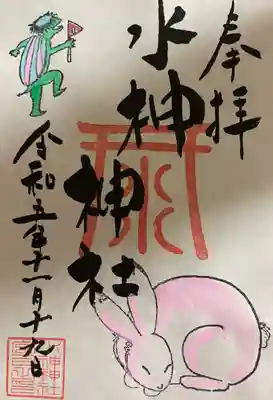 奉拝
水神
神社
令和五年十一月十九日